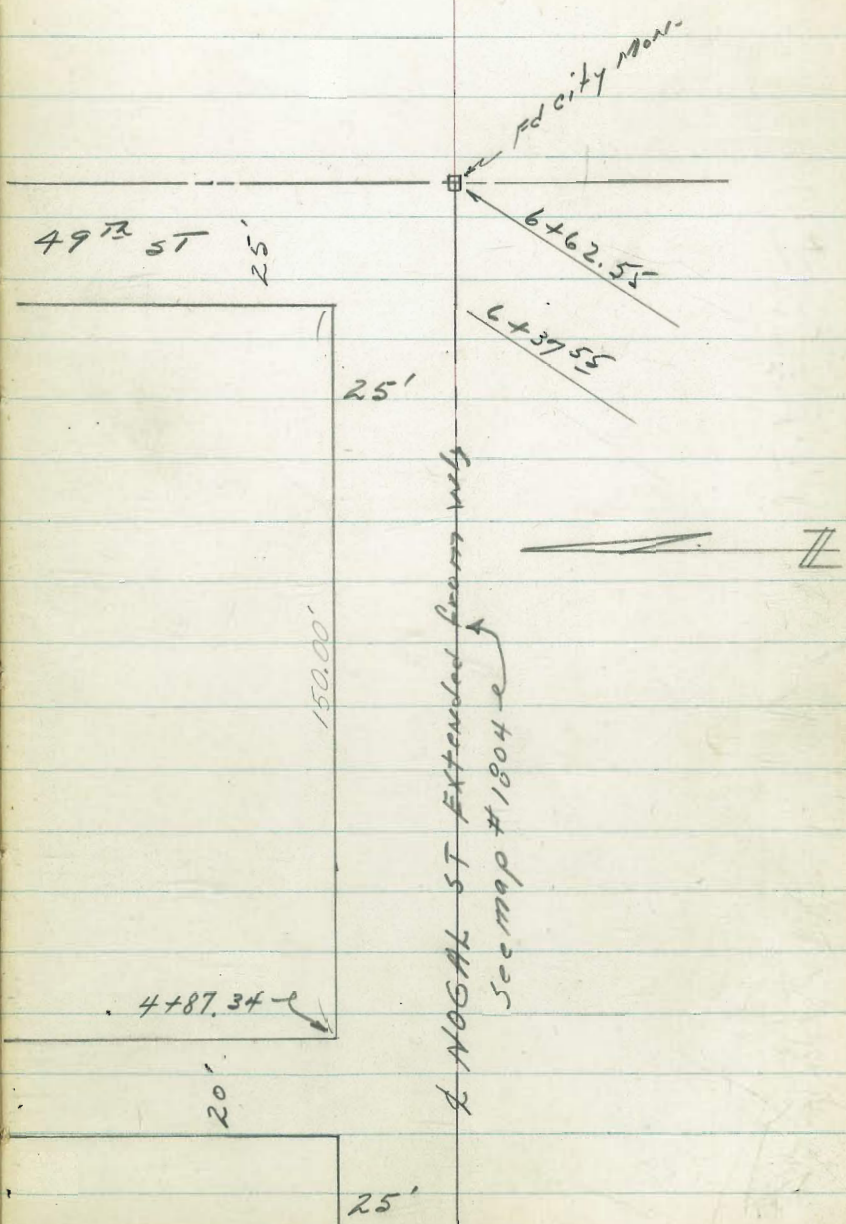 Fd city Mon-
49TH ST
25'
6+62.55
6+37 55
25'
150.00'
℄ NOGAL ST Extended from Wly
See map #1804
4+87.34
20'
25'